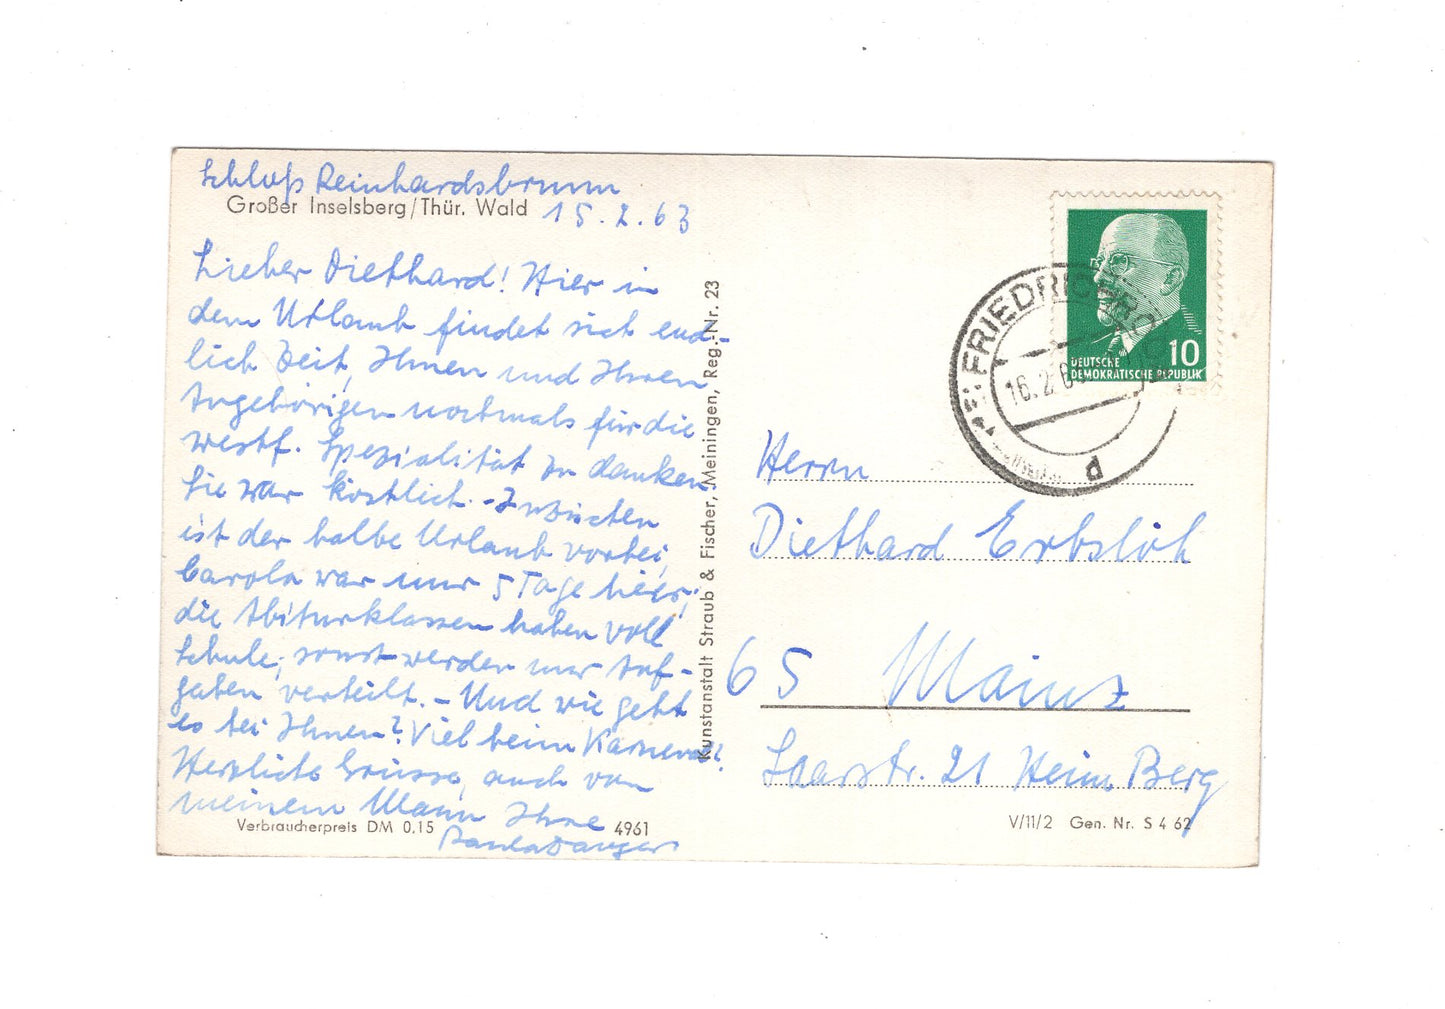 Schloß Reinhardsbrunn
Großer Inselsberg/Thür. Wald 15.2.63
Lieber Diethard! Hier in
dem Urlaub findet sich end-
lich Zeit, Ihnen und Ihren
Angehörigen nochmals für die
westf. Spezialität zu danken
Sie war köstlich. - Inzwischen
ist der halbe Urlaub vorbei,
Carola war nur 5 Tage hier,
die Abiturklassen haben voll
Schule, sonst werden nur Auf-
gaben verteilt. - Und wie geht
es bei Ihnen? Viel beim Karneval?
Herzliche Grüsse, auch von
meinem Mann Ihre
Verbraucherpreis DM 0,15 4961
Paula
Kunstanstalt Straub & Fischer, Meiningen, Reg.-Nr. 23
DEUTSCHE
DEMOKRATISCHE REPUBLIK
10
FRIEDRICHRODA
16.2.63
d
Herrn
Diethard Erbslöh
65 Mainz
Saarstr. 21 Heim Berg
V/11/2 Gen. Nr. S 4 62